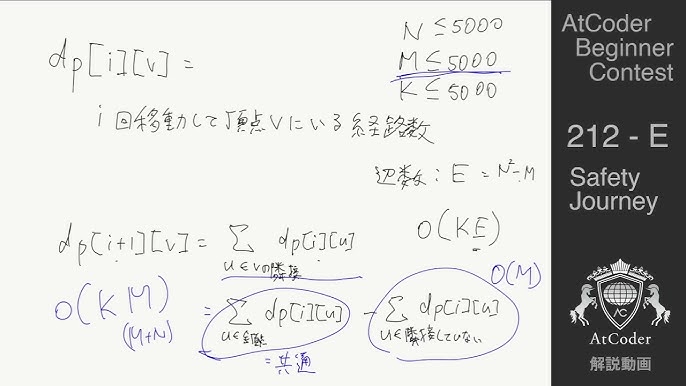 dp[i][v] =
N ≤ 5000
M ≤ 5000
K ≤ 5000
i 回移動して頂点 v にいる経路数
辺数 : E = N² - M
dp[i+1][v] = Σ dp[i][u]
u ∈ v の隣接
O(KE)
O(KM)
(M+N)
= Σ dp[i][u] - Σ dp[i][u]
u ∈ 全頂点
u ∈ 隣接していない
O(M)
= 共通
AtCoder
Beginner
Contest
212 - E
Safety
Journey
AC
AtCoder
解説動画